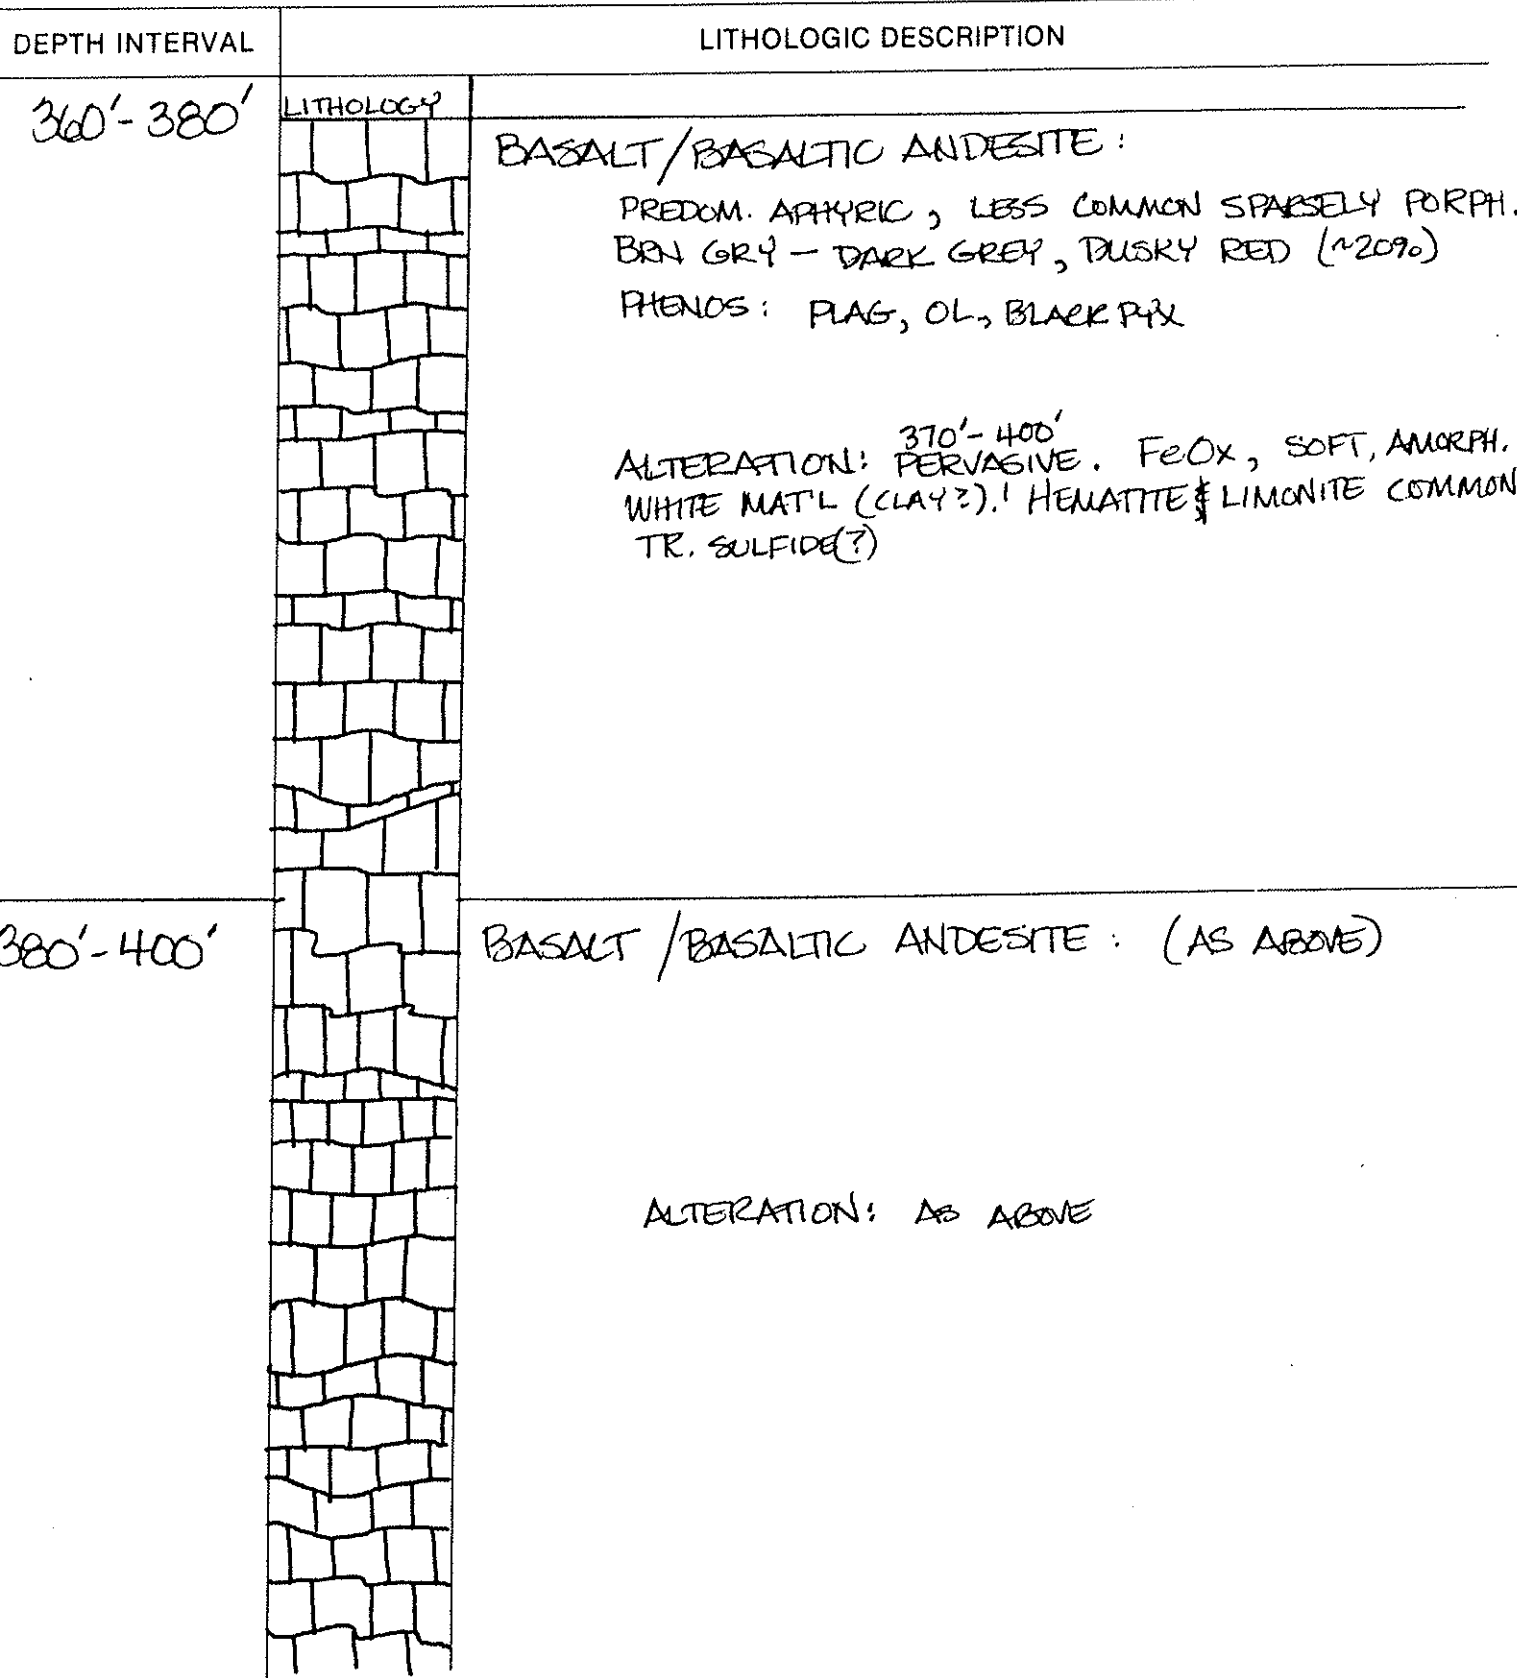 DEPTH INTERVAL
LITHOLOGIC DESCRIPTION
360'-380'
LITHOLOGY
BASALT/BASALTIC ANDESITE:
PREDOM. APHYRIC, LESS COMMON SPARSELY PORPH.
BRN GRY - DARK GREY, DUSKY RED (~20%)
PHENOS: PLAG, OL, BLACK PYX
370'-400'
ALTERATION: PERVASIVE. FeOx, SOFT, AMORPH.
WHITE MAT'L (CLAY?). HEMATITE & LIMONITE COMMON
TR. SULFIDE(?)
380'-400'
BASALT /BASALTIC ANDESITE: (AS ABOVE)
ALTERATION: AS ABOVE